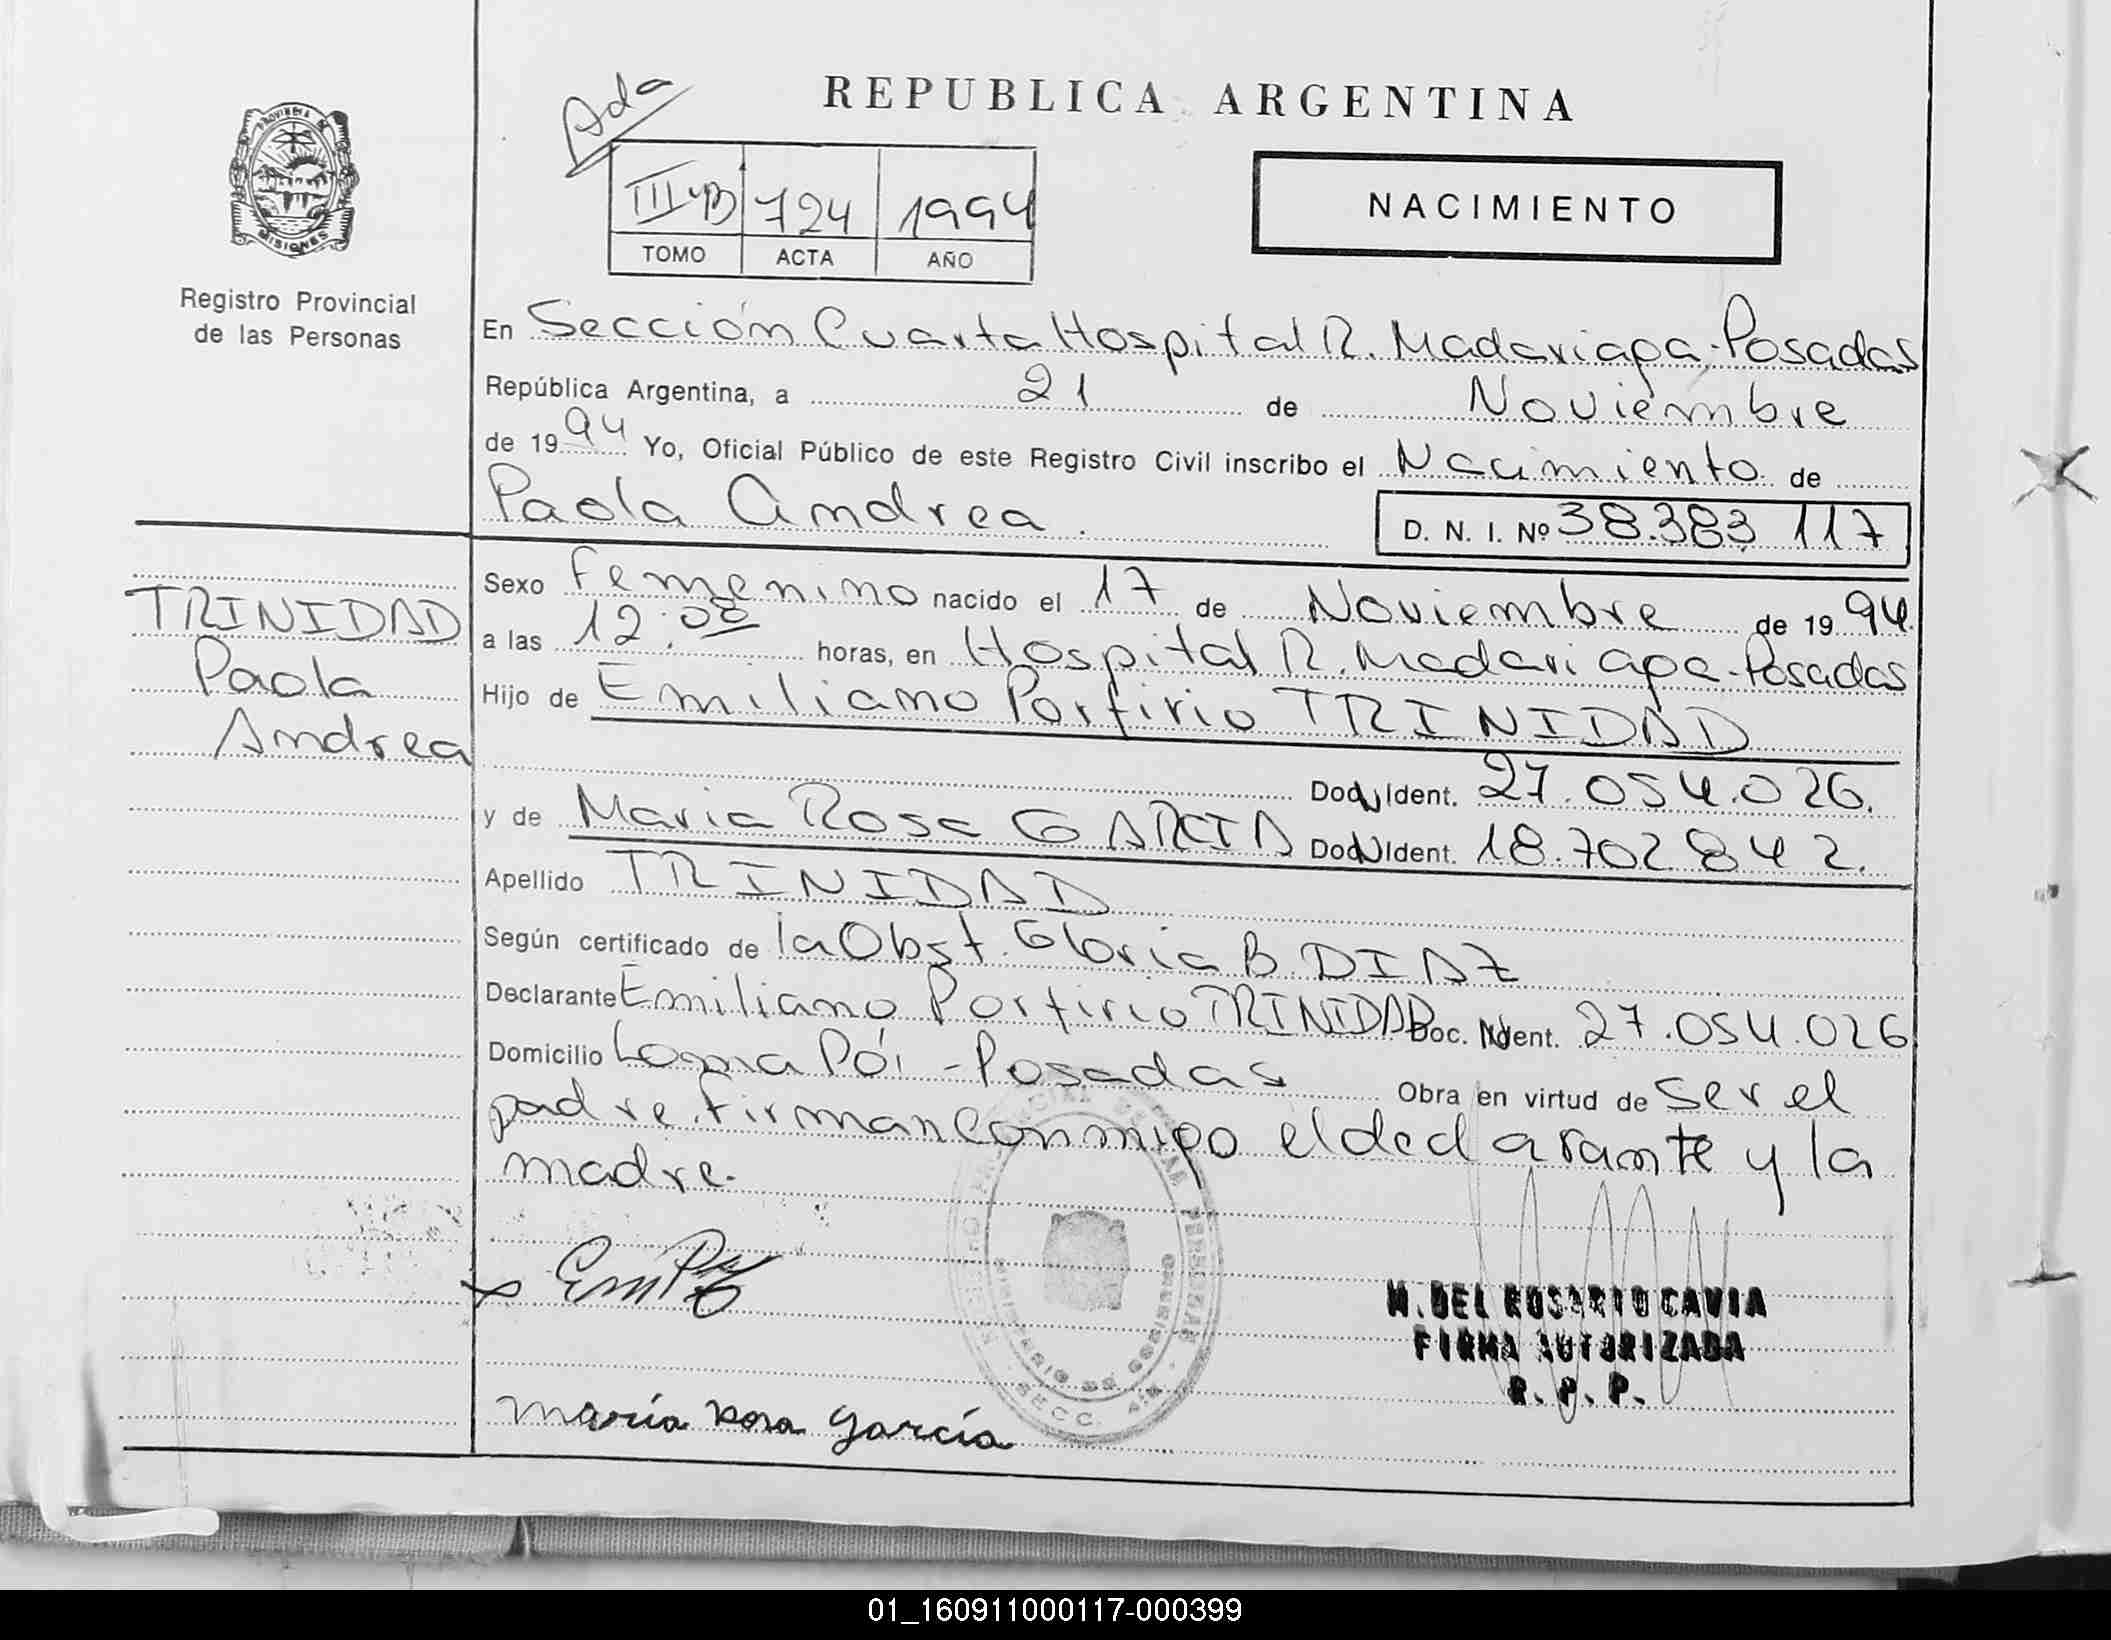 Ada
REPUBLICA ARGENTINA
PROVINCIA DE MISIONES
III-B 724 1994
TOMO ACTA AÑO
NACIMIENTO
Registro Provincial
de las Personas
En Sección Cuarta Hospital R. Madariaga-Posadas
República Argentina, a 21 de Noviembre
de 1994 Yo, Oficial Público de este Registro Civil inscribo el Nacimiento de
Paola Andrea. D. N. I. Nº 38.383 117
TRINIDAD
Paola
Andrea
Sexo Femenino nacido el 17 de Noviembre de 1994.
a las 12:00 horas, en Hospital R. Madariaga-Posadas
Hijo de Emiliano Porfirio TRINIDAD
Doc. Ident. 27.054.026.
y de Maria Rosa GARCIA Doc. Ident. 18.702 842.
Apellido TRINIDAD
Según certificado de la Obst. Gloria B. DIAZ
Declarante Emiliano Porfirio TRINIDAD Doc. Ident. 27.054.026
Domicilio Loma Pói - Posadas Obra en virtud de ser el
padre. Firman Conmigo el declarante y la
madre.
REGISTRO PROVINCIAL DE LAS PERSONAS
MINISTERIO DE GOBIERNO
SECC. 4ta.
M. DEL ROSARIO CAVIA
FIRMA AUTORIZADA
R. P. P.
María Rosa García
01_160911000117-000399